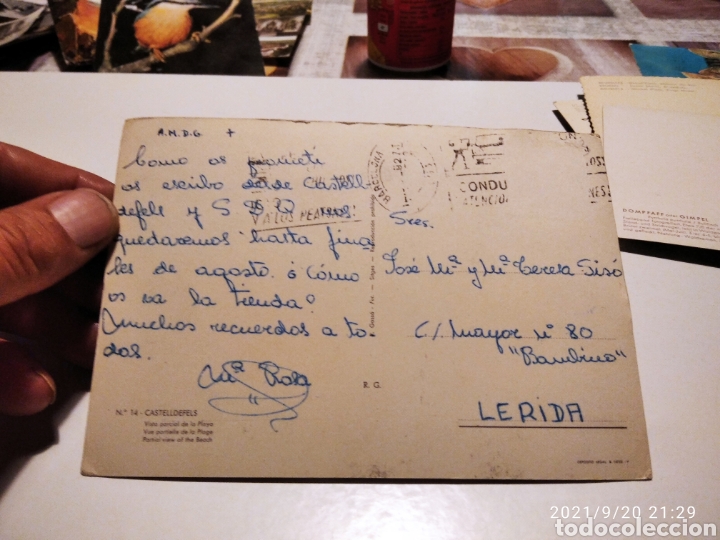 A.M.D.G +
Como os prometi
os escribo desde Castell-
defels y S nos
quedaremos hasta fina
les de agosto. ¿Cómo
os va la tienda?
Muchos recuerdos a to-
dos.
Mª Rosa
Nº 14 - CASTELLDEFELS
Vista parcial de la Playa
Vue partielle de la Plage
Partial view of the Beach
R. G.
BARCELONA
CONDU
ATENCIO
A LOS PEATONES
Sres.
José Mª y Mª Teresa Sisó
C/. Mayor nº 80
"Bambino"
LERIDA
ROMPEATE UND GIMPEL
2021/9/20 21:29
todocoleccion